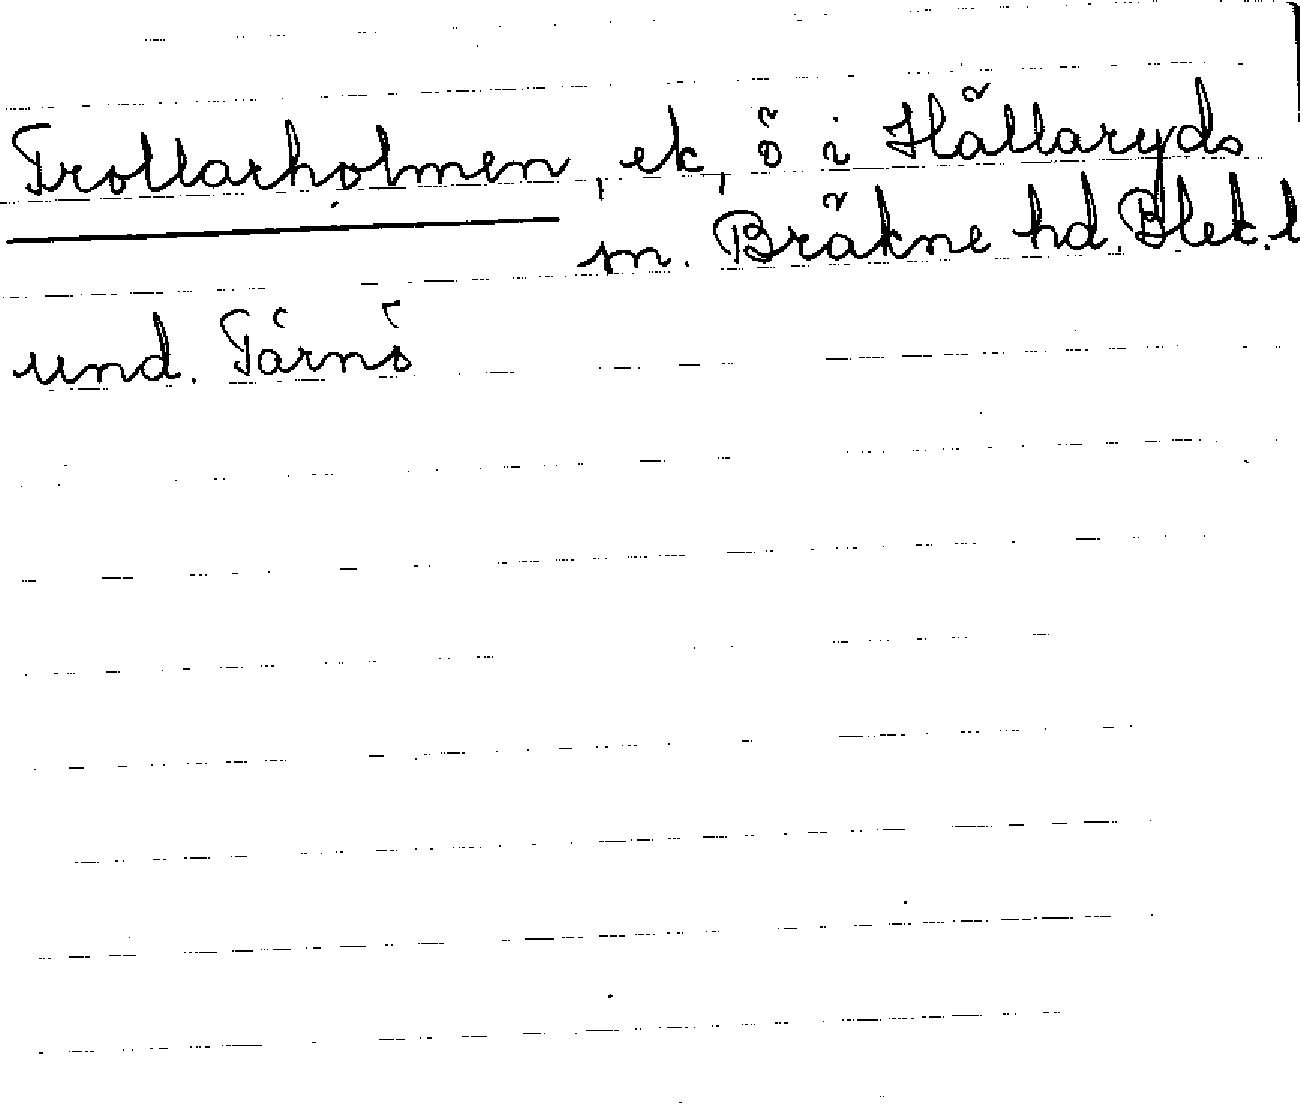 Trollarholmen, ek, ö i Hällaryds
sn. Bräkne hd. Blek. l
und. Tärnö